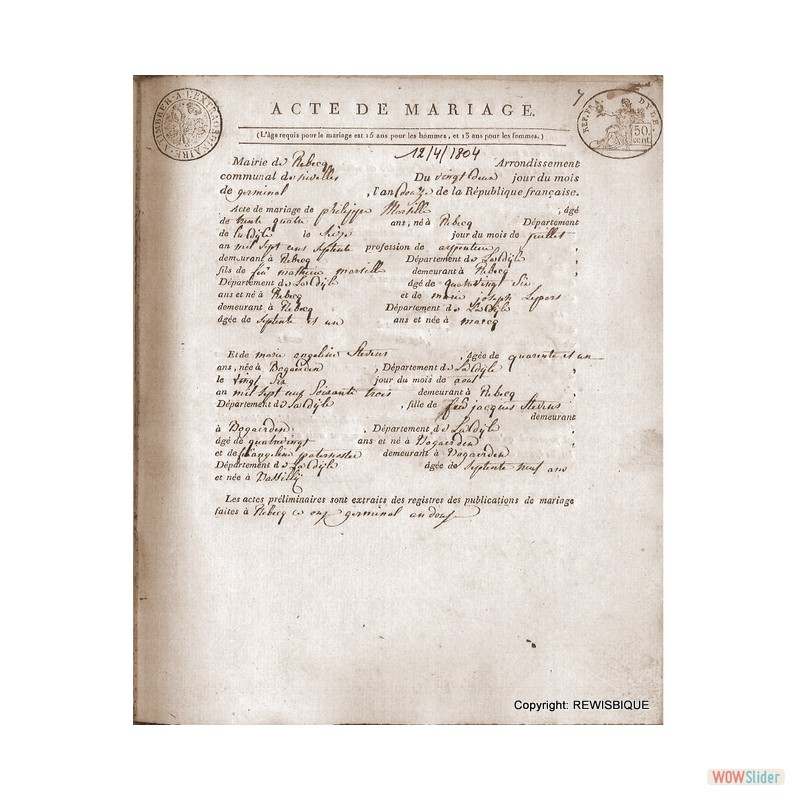 ACTE DE MARIAGE.
(L'âge requis pour le mariage est 15 ans pour les hommes, et 13 ans pour les femmes.)
12/4/1804
Mairie de Rebecq Arrondissement
communal de nivelles Du vingt deux jour du mois
de germinal , l'an douze de la République française.
Acte de mariage de philippe , âgé
de trente quatre ans, né à Rebecq Département
de la Dyle le Seize jour du mois de juillet
an mil Sept cens Septente profession de arpenteur
demeurant à Rebecq Département de La Dyle
fils de feu mathieu demeurant à Rebecq
Département de La Dyle âgé de quatrevingt Six
ans et né à Rebecq et de marie joseph Lepers
demeurant à Rebecq Département de La Dyle
âgée de Septente et un ans et née à marcq
Et de marie angeline Stevens , âgée de quarente et un
ans, née à Bogaerden , Département de La Dyle
le vingt Six jour du mois de aout
an mil Sept cens Soixante trois demeurant à Rebecq
Département de La Dyle , fille de feu jacques Stevens
demeurant
à Bogaerden , Département de La Dyle
âgé de quatrevingt ans et né à Bogaerden
et de paternoster demeurant à Bogaerden
Département de La Dyle âgée de Septente neuf ans
et née à
Les actes préliminaires sont extraits des registres des publications de mariage
faites à Rebecq ce onze germinal an douze
TIMBRER A L'EXTRAORDINAIRE
50.
cent
Copyright: REWISBIQUE
WOWSlider